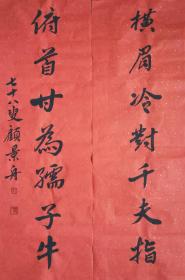 橫眉冷對千夫指
俯首甘為孺子牛
七十八叟顧景舟